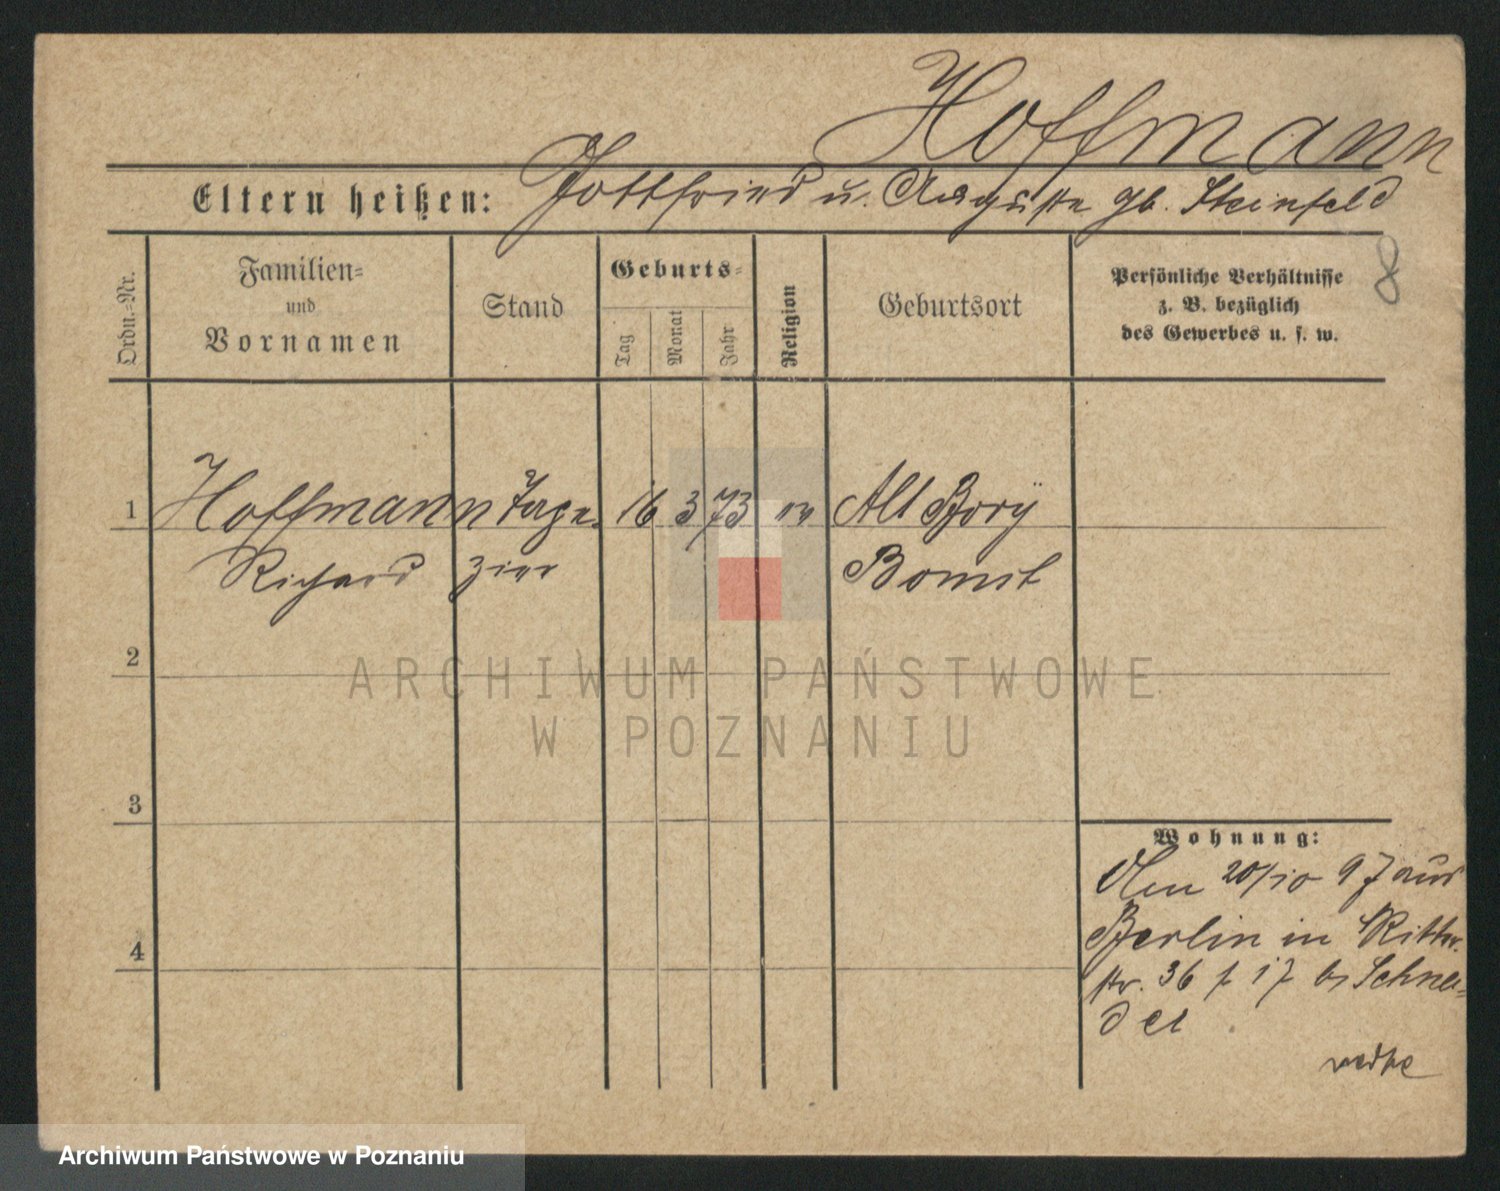 Hoffmann
Eltern heißen: Gottfried u. Auguste gb. Steinfeld
8
Ordn.-Nr.
Familien-
und
Vornamen
Stand
Geburts-
Tag
Monat
Jahr
Religion
Geburtsort
Persönliche Verhältnisse
z. B. bezüglich
des Gewerbes u. s. w.
1 Hoffmann Tape- 16 3 73 ev Alt
Richard zier Bomst
2
3
4
Wohnung:
Den 20/10 97 aus
Berlin in Ritter-
str. 36 b Schnei-
der
ARCHIWUM PAŃSTWOWE
W POZNANIU
Archiwum Państwowe w Poznaniu